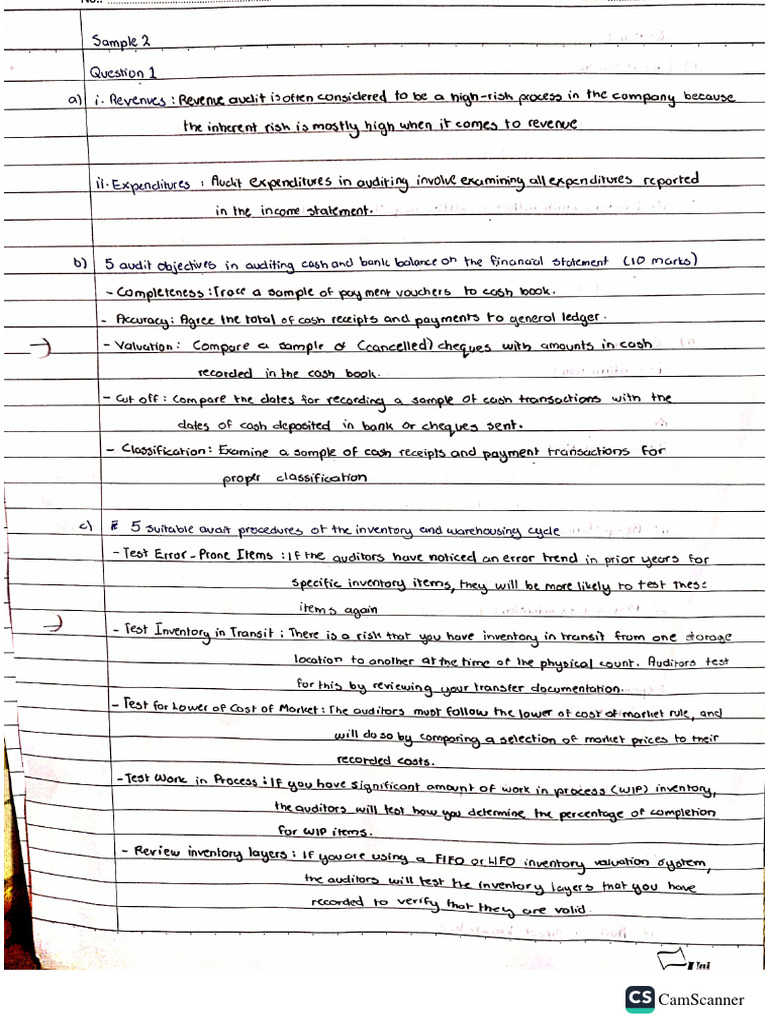 No.:
Sample 2
Question 1
a) i. Revenues : Revenue audit is often considered to be a high-risk process in the company because
the inherent risk is mostly high when it comes to revenue
ii. Expenditures : Audit expenditures in auditing involve examining all expenditures reported
in the income statement.
b) 5 audit objectives in auditing cash and bank balance on the financial statement (10 marks)
- Completeness : Trace a sample of payment vouchers to cash book.
- Accuracy : Agree the total of cash receipts and payments to general ledger.
- Valuation : Compare a sample of (cancelled) cheques with amounts in cash
recorded in the cash book.
- Cut off : Compare the dates for recording a sample of cash transactions with the
dates of cash deposited in bank or cheques sent.
- Classification : Examine a sample of cash receipts and payment transactions for
proper classification
c) 5 suitable audit procedures of the inventory and warehousing cycle
- Test Error-Prone Items : If the auditors have noticed an error trend in prior years for
specific inventory items, they will be more likely to test these
items again
- Test Inventory in Transit : There is a risk that you have inventory in transit from one storage
location to another at the time of the physical count. Auditors test
for this by reviewing your transfer documentation.
- Test for Lower of Cost of Market : The auditors must follow the lower of cost of market rule, and
will do so by comparing a selection of market prices to their
recorded costs.
- Test Work in Process : If you have significant amount of work in process (WIP) inventory,
the auditors will test how you determine the percentage of completion
for WIP items.
- Review inventory layers : If you are using a FIFO or LIFO inventory valuation system,
the auditors will test the inventory layers that you have
recorded to verify that they are valid.
CS CamScanner